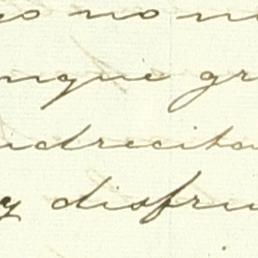 no no
nque gr
ndrecita
y disfru